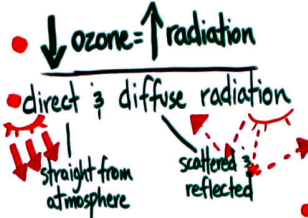 ↓ ozone = ↑ radiation
direct & diffuse radiation
straight from
atmosphere
scattered &
reflected